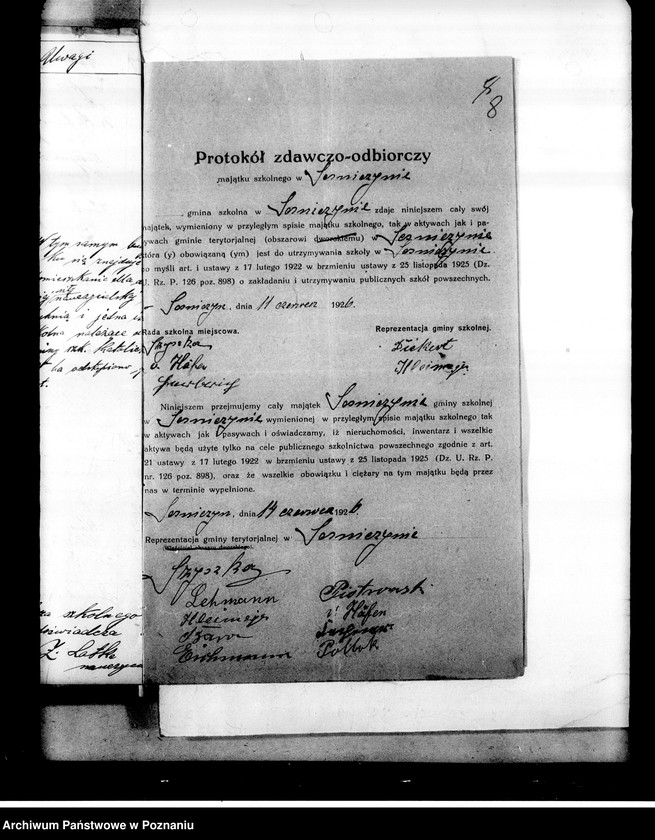 Uwagi
8
Protokół zdawczo-odbiorczy
majątku szkolnego w Sośniczynie
gmina szkolna w Sośniczynie zdaje niniejszem cały swój
majątek, wymieniony w przyległym spisie majątku szkolnego, tak w aktywach jak i pa-
sywach gminie terytorjalnej (obszarowi dworskiemu) w Sośniczynie
która (y) obowiązaną (ym) jest do utrzymywania szkoły w Sośniczynie
po myśli art. 1 ustawy z 17 lutego 1922 w brzmieniu ustawy z 25 listopada 1925 (Dz.
U. Rz. P. 126 poz. 898) o zakładaniu i utrzymywaniu publicznych szkół powszechnych.
Sośniczyn, dnia 11 czerwca 1926.
Rada szkolna miejscowa.
Reprezentacja gminy szkolnej.
Szyszka
Dickert
v. Häfen
Kleimeyer
Niniejszem przejmujemy cały majątek Sośniczynie gminy szkolnej
w Sośniczynie wymienionej w przyległym spisie majątku szkolnego tak
w aktywach jak i pasywach i oświadczamy, iż nieruchomości, inwentarz i wszelkie
aktywa będą użyte tylko na cele publicznego szkolnictwa powszechnego zgodnie z art.
21 ustawy z 17 lutego 1922 w brzmieniu ustawy z 25 listopada 1925 (Dz. U. Rz. P.
nr. 126 poz. 898), oraz że wszelkie obowiązki i ciężary na tym majątku będą przez
nas w terminie wypełnione.
Sośniczyn, dnia 14 czerwca 1926
Reprezentacja gminy terytorjalnej w Sośniczynie
Szyszka
Lehmann
Piotrowski
Kleimeyer
v. Häfen
Eichmann
Pollok
szkolnego
doświadcza
Archiwum Państwowe w Poznaniu